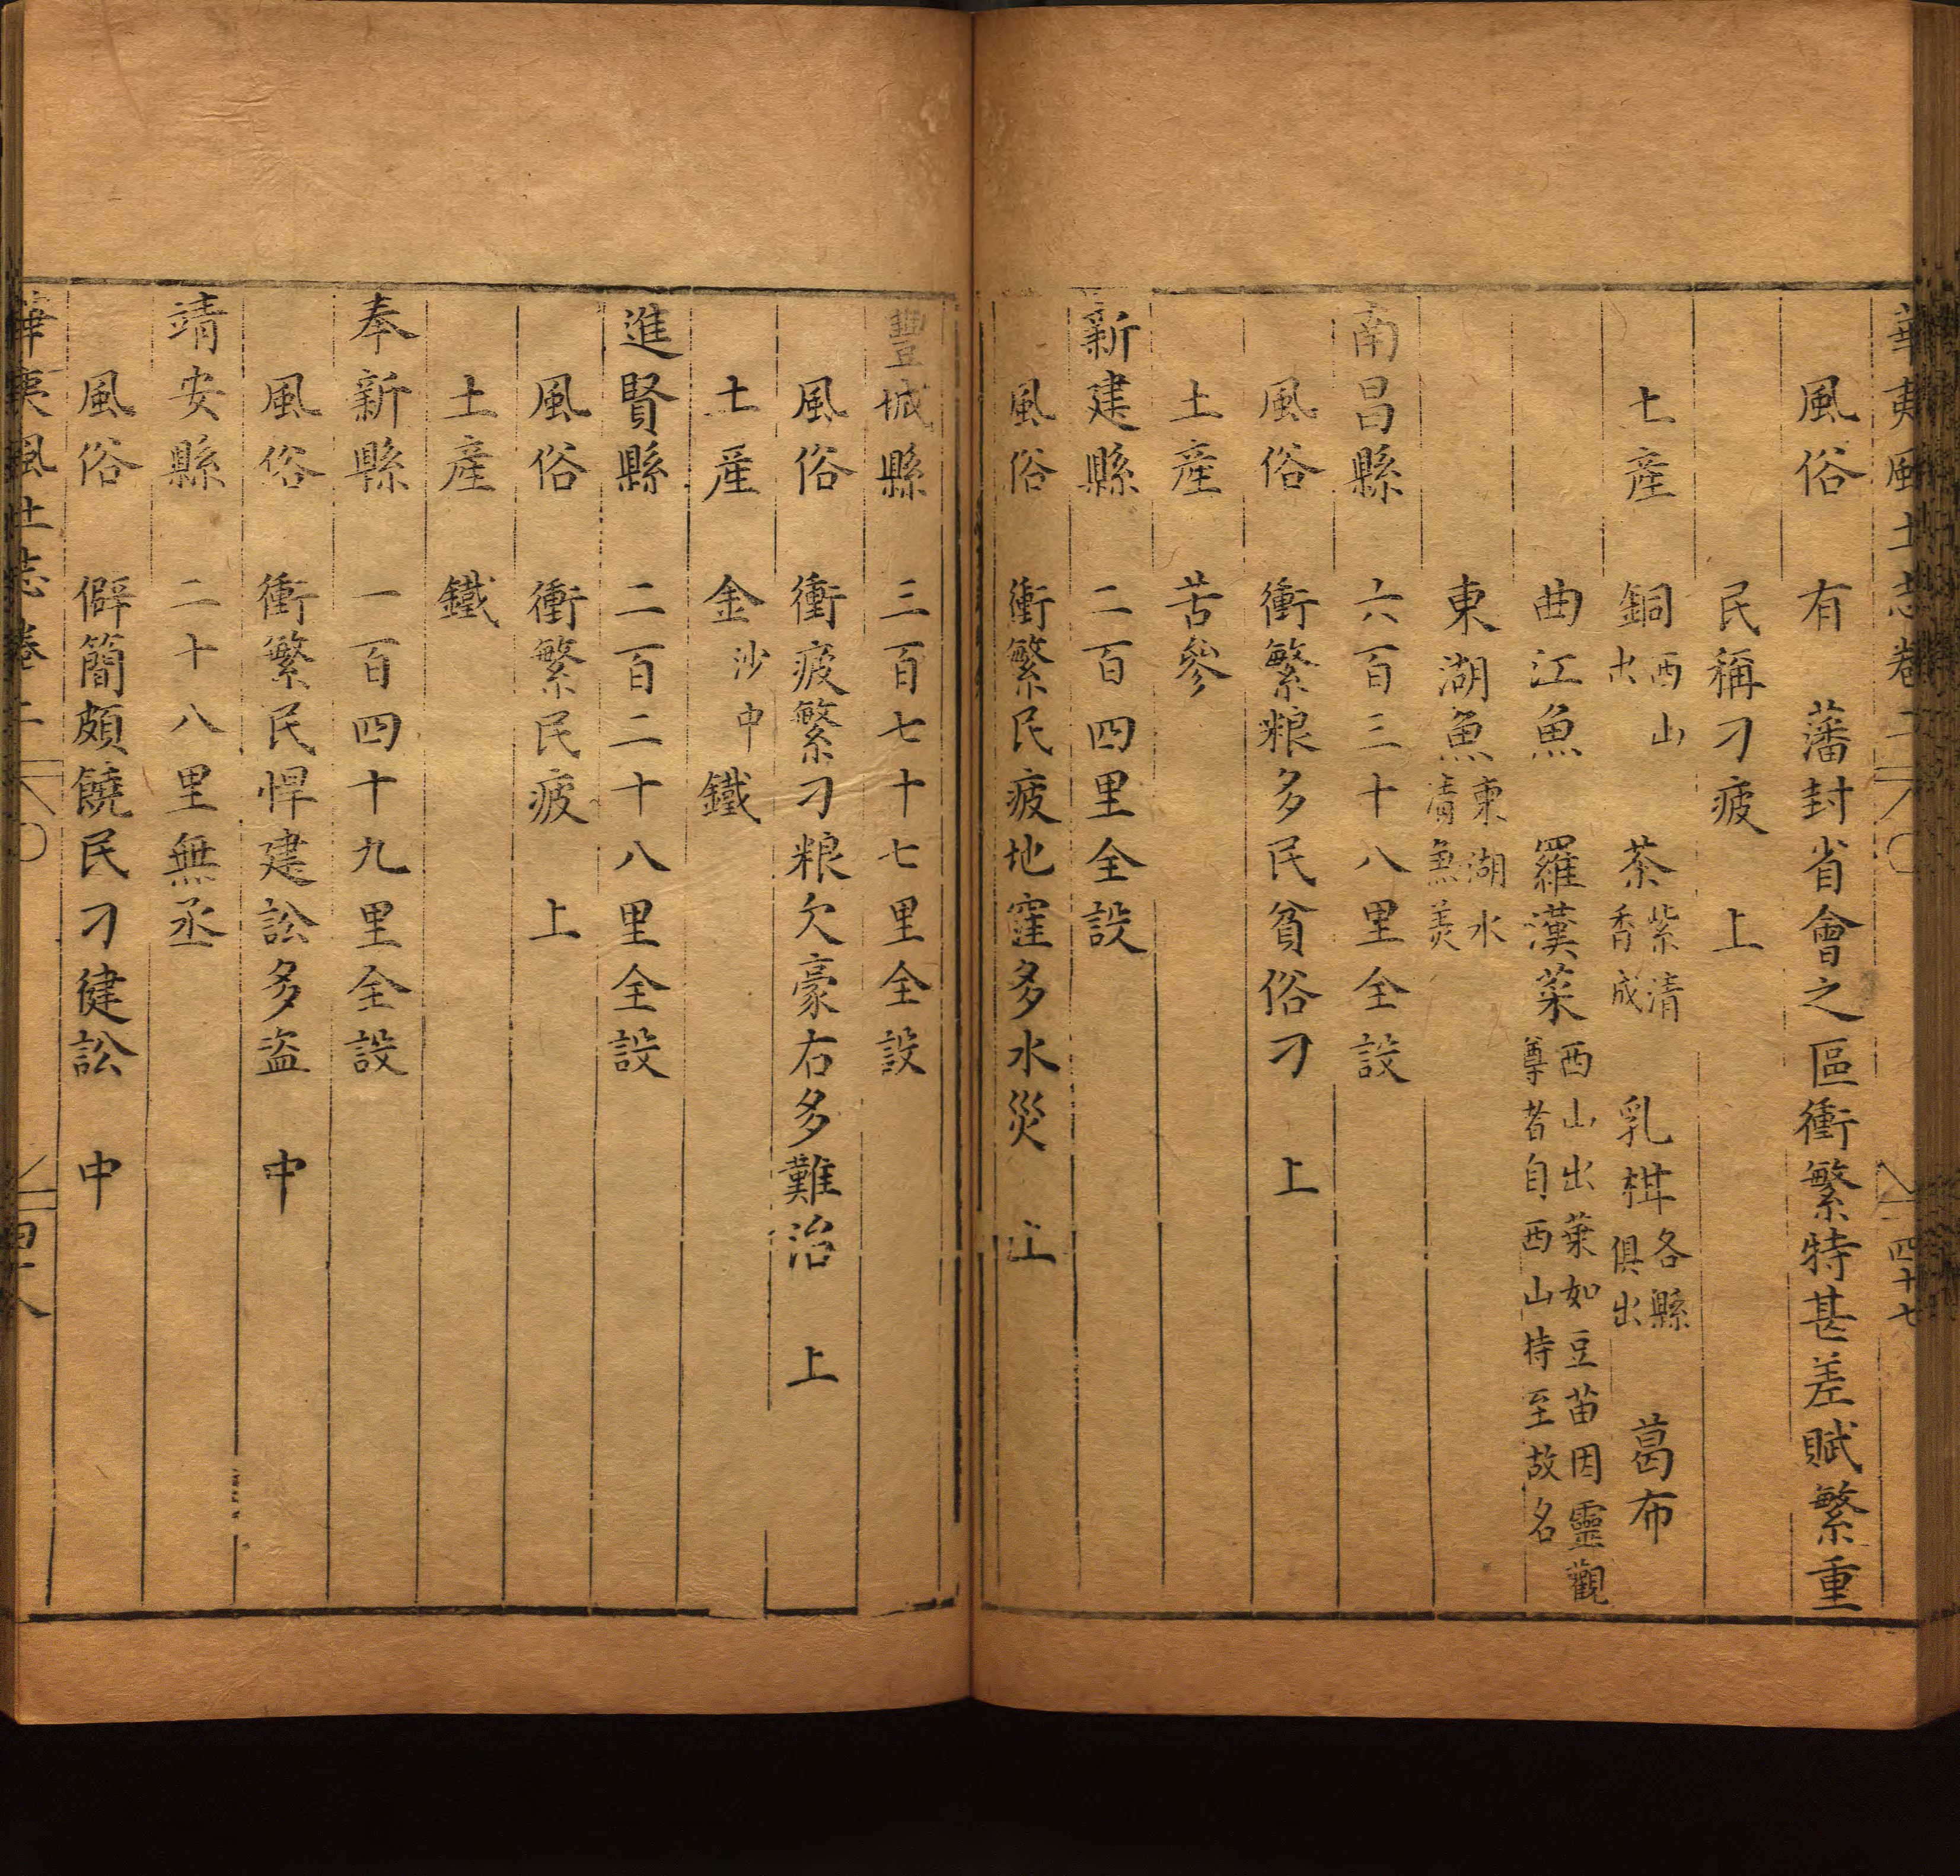 華夷風土志卷二 四十七
風俗 有 藩封省會之區衝繁特甚差賦繁重
民稱刁疲 上
土產 銅西山出 茶紫清香成 乳柑各縣俱出 葛布
曲江魚 羅漢菜西山出葉如豆苗因靈觀尊者自西山持至故名
東湖魚東湖水清魚美
南昌縣 六百三十八里全設
風俗 衝繁粮多民貧俗刁 上
土產 苦參
新建縣 二百四里全設
風俗 衝繁民疲地窪多水災 上
豐城縣 三百七十七里全設
風俗 衝疲繁刁粮欠豪右多難治 上
土産 金沙中 鐵
進賢縣 二百二十八里全設
風俗 衝繁民疲 上
土產 鐵
奉新縣 一百四十九里全設
風俗 衝繁民悍建訟多盜 中
靖安縣 二十八里無丞
風俗 僻簡頗饒民刁健訟 中
華夷風土志卷二